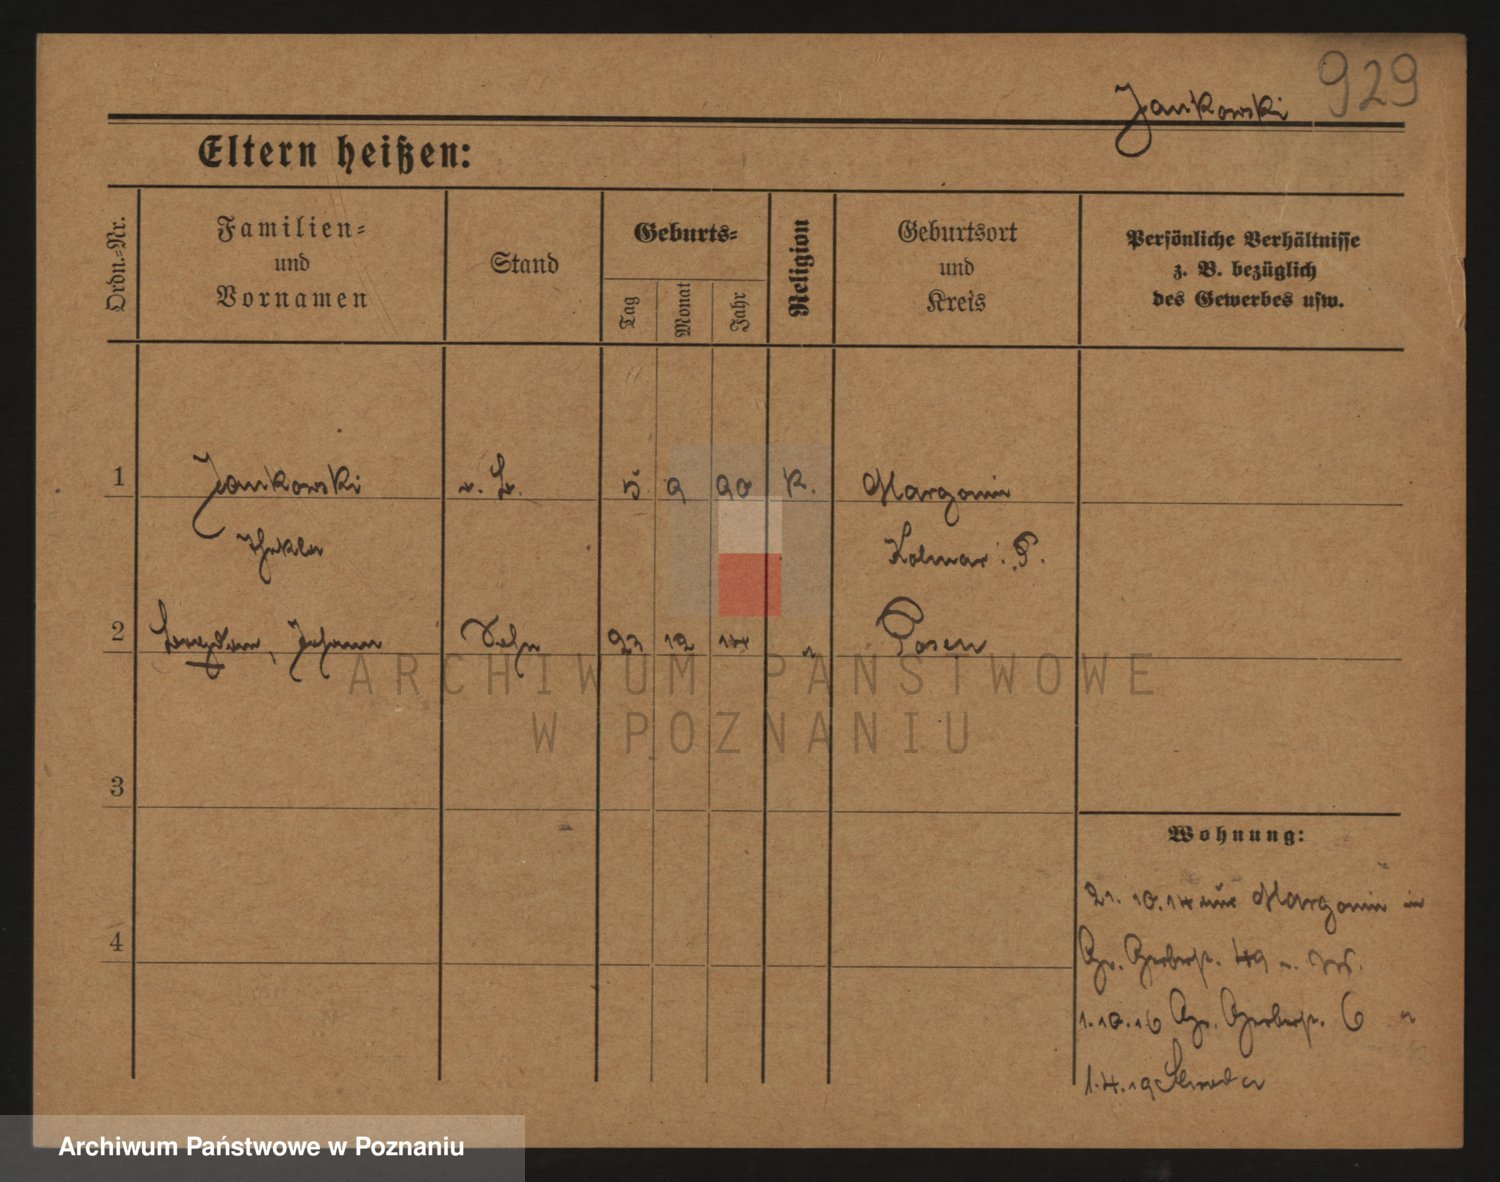 929
Jankowski
Eltern heißen:
Ordn.-Nr.
Familien-
und
Vornamen
Stand
Geburts-
Tag
Monat
Jahr
Religion
Geburtsort
und
Kreis
Persönliche Verhältnisse
z. B. bezüglich
des Gewerbes usw.
1 Jankowski 5 9 90 K. Margonin
Thekla Kolmar i. P.
2 Johann Sohn 23 12 14 " Posen
ARCHIWUM PAŃSTWOWE
W POZNANIU
3
Wohnung:
21. 10. 14 aus Margonin in
4
Gr. Gerberst. 49
1. 10. 16 Gr. Gerberst. 6
1. 4. 19
Archiwum Państwowe w Poznaniu